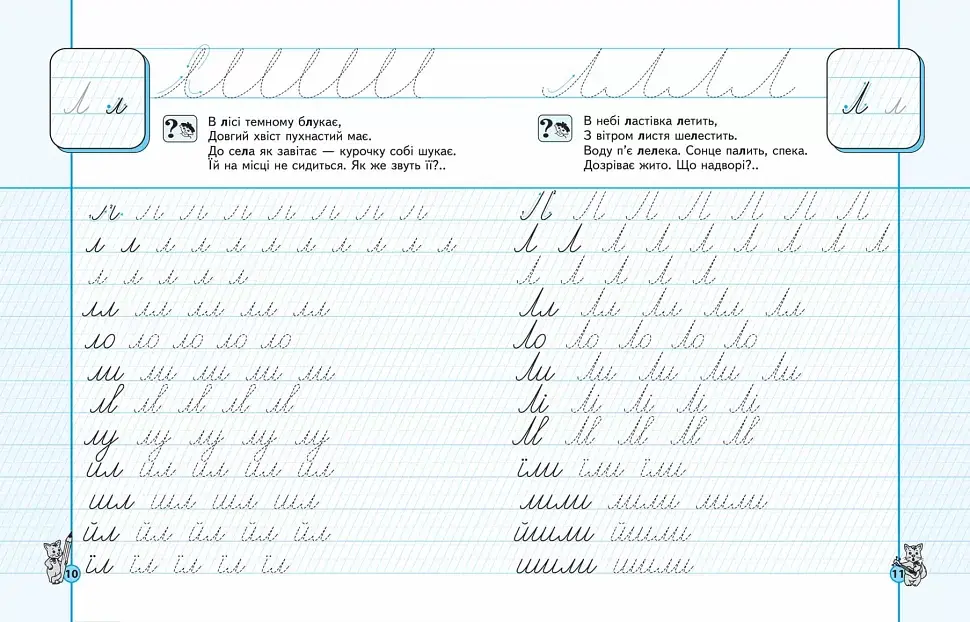 Л л
В лісі темному блукає,
Довгий хвіст пухнастий має.
До села як завітає — курочку собі шукає.
Їй на місці не сидиться. Як же звуть її?..
л л л л л л л л л л л
л л л л л
лл лл лл лл лл
ло ло ло ло ло
ли ли ли ли ли
лу лу лу лу лу
ил ил ил ил ил
шл шл шл шл
йл йл йл йл йл
їл їл їл їл їл
10
Л л
В небі ластівка летить,
З вітром листя шелестить.
Воду п’є лелека. Сонце палить, спека.
Дозріває жито. Що надворі?..
Л Л Л Л Л Л Л Л Л
Л Л Л Л Л
Лл Лл Лл Лл Лл
Ло Ло Ло Ло Ло
Ли Ли Ли Ли Ли
Лі Лі Лі Лі Лі
їли їли їли
мили мили мили
йшли йшли
шили шили
11